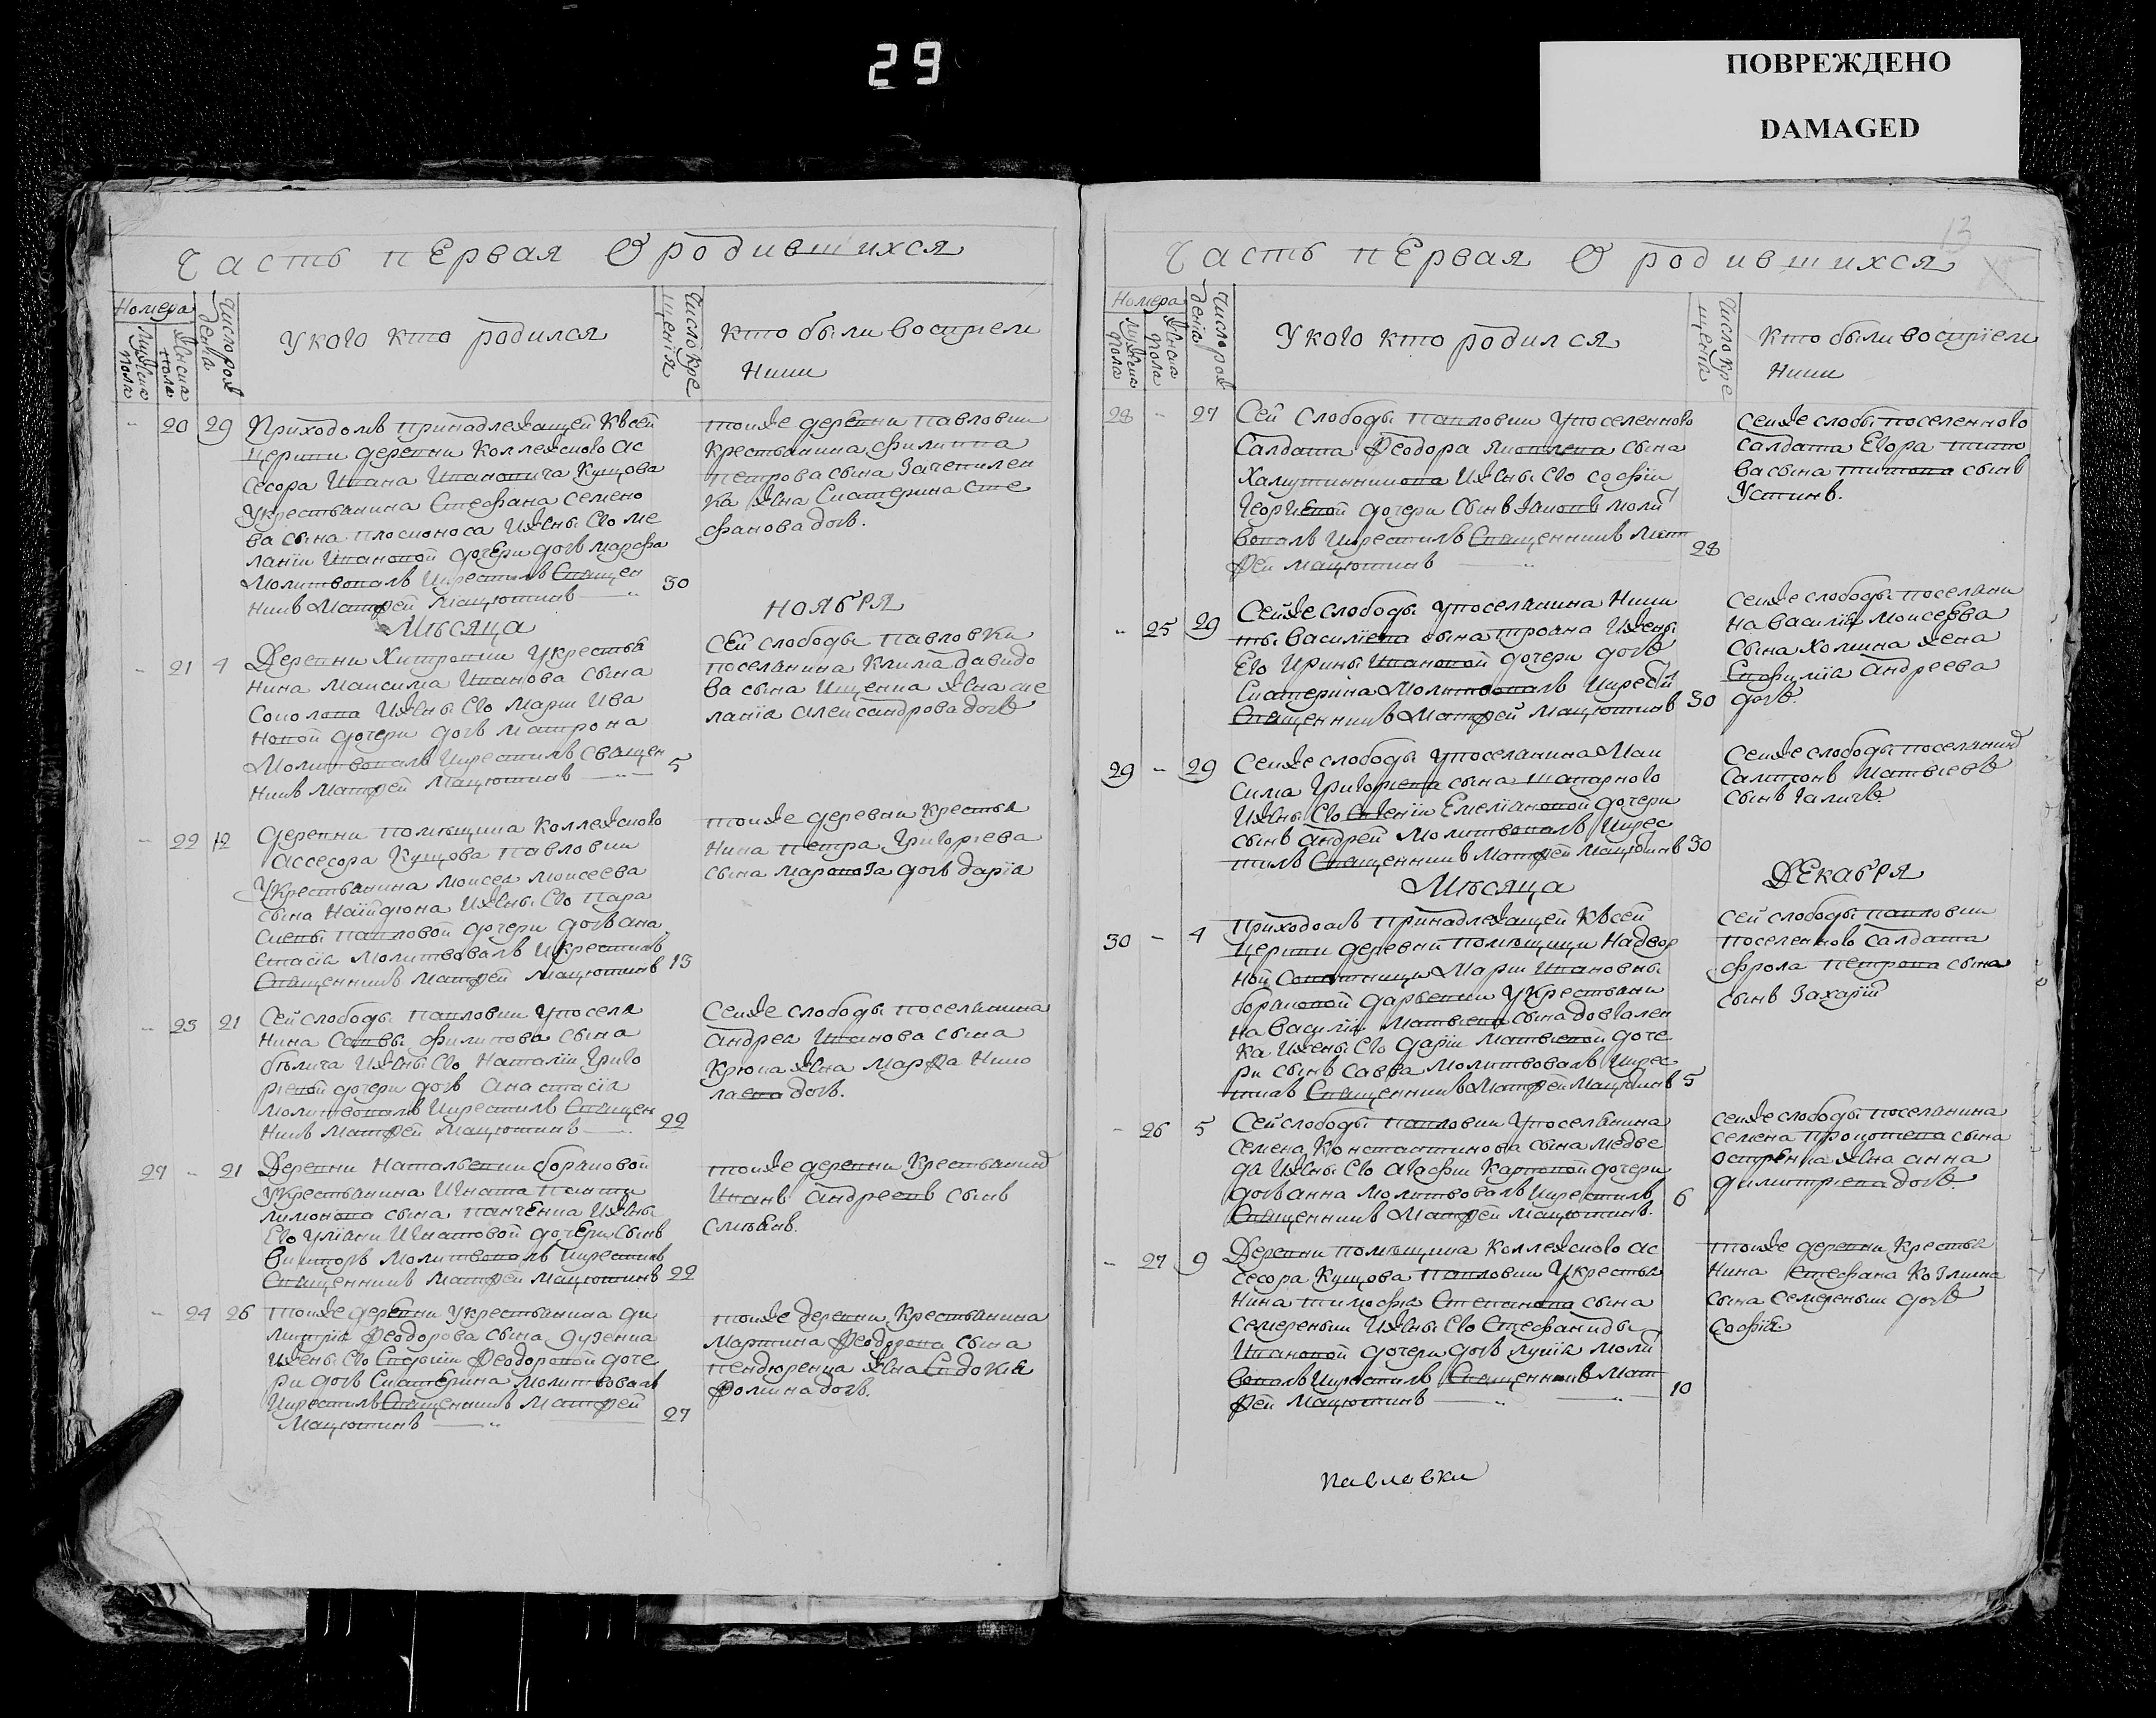 29
ПОВРЕЖДЕНО
DAMAGED
Часть пЕрвая О родившихся
Номера
Мужеска пола
Женска пола
Число рождения
У кого кто родился
Число крещения
Кто были восприем
ники
20 29
Приходомъ принадлежащей Квсей
церкви деревни Коллежского ас
сесора Ивана Ивановича Кущова
Укрестьянина Стефана Семено
ва сына плосконоса Ижены Его Ме
ланiи Ивановой дочери дочь марфа
Молитвовалъ Икрестилъ Священ
никъ Матфей Мацютинъ 30
тойже деревни павловки
Крестьянина филиппа
петрова сына Зачепилен
ка жена Екатерина Сте
фанова дочь.
Мѣсяца
НОЯБРЯ
21 4
Деревни Хитровки Укрестья
нина Максима Иванова сына
Соколова Ижены Его Марiи Ива
новой дочери дочь матрона
Молитвовалъ Икрестилъ священ
никъ Матфей Мацютинъ 5
Сей слободы павловки
поселянина Клима давидо
ва сына Ищенка жена ме
ланiя Александрова дочь
22 12
деревни помѣщика Коллежского
Ассесора Кущова павловки
Укрестьянина Моисея Моисеева
сына Найдiона Ижены Его пара
скевы павловой дочери дочь ана
стасiя Молитвовалъ Икрестилъ
Священникъ Матфей Мацютинъ 13
тойже деревни Крестья
нина петра Григорiева
сына Мароноза дочь дарiя
23 21
Сей слободы павловки Упоселя
нина Саввы филипова сына
бѣлича Ижены Его Наталiи Григо
рiевой дочери дочь Анастасiя
Молитвовалъ Икрестилъ Священ
никъ Матфей Мацютинъ 22
Сейже слободы поселянина
андрея Иванова сына
Крюка жена Марфа Нико
лаева дочь.
27 21
Деревни Натальевки борановой
Укрестьянина Игната панти
лимонова сына панченка Ижены
Его Улiани Игнатовой дочери сынъ
викторъ Молитвовалъ Икрестилъ
Священникъ Матфей Мацютинъ 22
тойже деревни Крестьянинъ
Иванъ Андреевъ сынъ
24 26
тойже деревни Укрестьянина ди
митрiя Феодорова сына дузенка
Ижены Его Евфимiи Феодоровой доче
ри дочь Екатерина Молитвовалъ
Икрестилъ Священникъ Матфей
Мацютинъ 27
тойже деревни Крестьянина
Мартина Феодорова сына
пендюренка жена Евдокия
Фомина дочь.
13
Часть пЕрвая О родившихся
Номера
Мужеска пола
Женска пола
Число рождения
У кого кто родился
Число крещена
Кто были восприем
ники
28 27
Сей слободы павловки Упоселенного
Салдата Феодора Яковлева сына
Ижены Его софiи
Георгiевой дочери сынъ Iаковъ моли
вовалъ Икрестилъ Священникъ Мат
фей Мацютинъ 28
сейже слобы поселенного
салдата Егора тито
ва сына титова сынъ
Устинъ.
25 29
Сейже слободы Упоселянина Ники
ты василiева сына трояна Ижены
Его Ирины Ивановой дочери дочь
Екатерина Молитвовалъ Икрести
Священникъ Матфей Мацютинъ 30
сейже слободы поселяни
на василiя Моисеева
сына Холкина жена
Евфимiя андреева
дочь.
29 29
Сейже слободы Упоселянина Мак
сима Григорiева сына
Ижены Его Евгенiи Емелiановой дочери
сынъ андрей Молитвовалъ Икрес
тилъ Священникъ Матфей Мацютинъ 30
Сейже слободы поселянинъ
Самсонъ Матвѣевъ
сынъ Галичъ.
Мѣсяца
ДЕкабРЯ
30 4
приходомъ принадлежащей Квсей
церкви деревни помѣщицы Надвор
ной Советницы Марiи Ивановны
борановой дарьевки Укрестьяни
на Василiя Матвiева сына довгален
ка Ижены Его дарiи Матвiевой доче
ри сынъ Савва Молитвовалъ Икрес
тилъ Священникъ Матфей Мацютинъ 5
сей слободы павловки
поселенного салдата
фрола петрова сына
сынъ Захарiй
26 5
Сей слободы павловки Упоселянина
семена Константинова сына медве
дя Ижены Его агафiи Карповой дочери
дочь анна Молитвовалъ Икрестилъ
Священникъ Матфей Мацютинъ. 6
сейже слободы поселянина
семена прокопiева сына
остренка жена анна
димитрiева дочь.
27 9
Деревни помѣщика Коллежского ас
сесора Кущова павловки Укрестья
нина тимофея Степанова сына
семереньки Ижены Его Стефаниды
Ивановой дочери дочь лукiя моли
вовалъ Икрестилъ Священникъ Мат
фей Мацютинъ 10
тойже деревни Крестья
нина Стефана Козмина
сына Семереньки дочь
Софiя.
павловки